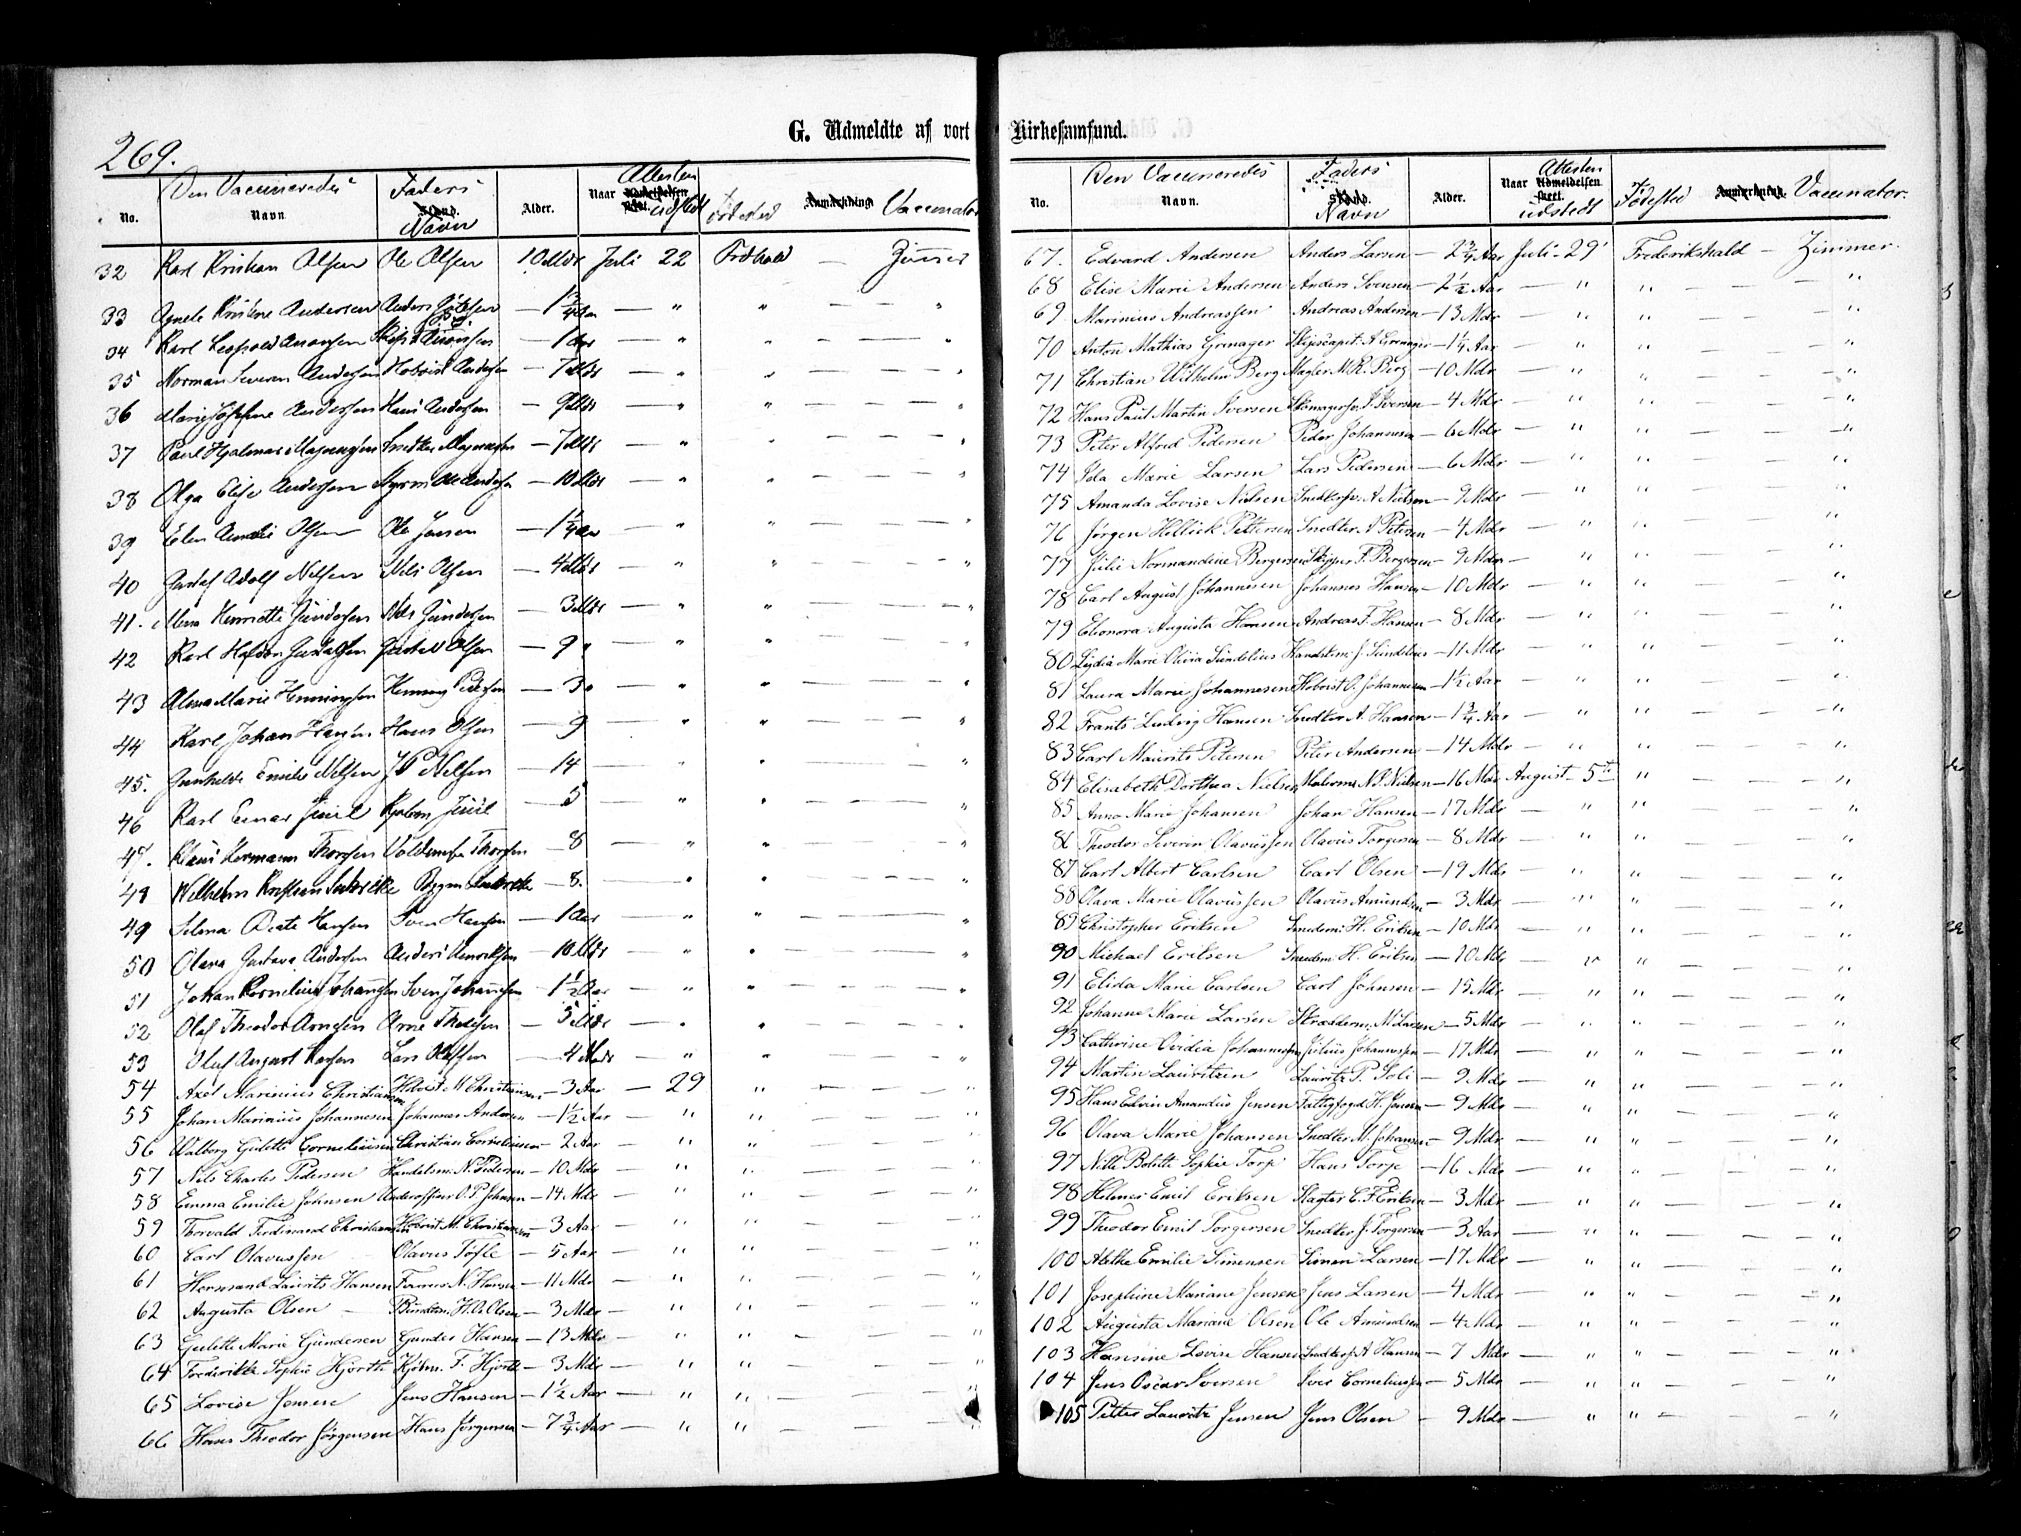 269.
G. Udmeldte af vort Kirkesamfund.
No. Den Vaccineredes Navn. Faders Stand. Navn Alder. Naar Udmeldelsen Attesten udstedt Fødested Anmærkning. Vaccinator
32 Karl Kristian Olsen Ole Olsen 10 Mdr Juli 22 Frdhald — Zimmer
33 Agnete Kristine Andersen Anders — 1 3/4 Aar — " "
34 Karl Leopold — 1 Aar — " "
35 Norman Severin Andersen Hoboist Andersen — 7 Mdr — " "
36 Marie Josephine Andersen Hans Andersen — 9 Mdr — " "
37 Paul Hjalmar Magnussen Snedker Magnussen — 7 Mdr — " "
38 Olga Elise Andersen Styrm Andersen — 10 Mdr — " "
39 Elen Olsen Ole Jensen — 1 1/4 Aar — " "
40 Gustaf Adolf Nilsen Nils Olsen — 4 Mdr — " "
41. Mina Henriette Gundersen Nils Gundersen — 3 Mdr — " "
42 Karl Halvor Gustavsen Gustav Olsen — 9 " — " "
43 Alma Marie Henningsen Henning Pedersen — 3 " — " "
44 Karl Johan Hansen Hans Olsen — 9 — " "
45. Gunhilde Emilie Nilsen J P Nilsen — 14 — " "
46 Karl Einar Juul Juul — 5 — " "
47. Klaus Hermann Thorsen Thorsen — 8 — " "
48 Wilhelm Kristian — 8. — " "
49 Selma Beate Hansen Sven Hansen — 1 Aar — " "
50 Olava Gustava Andersen Anders Henriksen — 10 Mdr — " "
51 Johan Kornelius Johannesen Sven Johannesen — 1 1/2 Aar — " "
52 Olaf Theodor Arnesen Arne — 5 Mdr — " "
53 Oluf August Larsen Lars — 4 Mdr — " "
54 Axel Marinius Christiansen Hoboist M Christiansen — 3 Aar — 29 "
55 Johan Marinius Johannesen Johannes Andersen — 1 1/2 Aar — " "
56 Walborg Gulette Corneliusen Christian Corneliusen — 2 Aar — " "
57 Nils Charles Pedersen Handelsm. N. Pedersen — 10 Mdr — " "
58 Emma Emilie Johnsen Underofficer O. P. Johnsen — 14 Mdr — " "
59 Thorvald Ferdinand Christiansen Hoboist M. Christiansen — 3 Aar — " "
60 Carl Olavussen Olavus Tofle — 5 Aar — " "
61 Hermand Laurits Hansen N. Hansen — 11 Mdr — " "
62 Augusta Olsen — H. O. Olsen — 3 Mdr — " "
63 Gulette Marie Gundersen Gunder Hansen — 13 Mdr — " "
64 Frederikke Sophie Hjorth Kjøbm. F. Hjorth — 3 Mdr — " "
65 Lovise Jensen Jens Hansen — 1 1/2 Aar — " "
66 Hans Theodor Jørgensen Hans Jørgensen — 7 3/4 Aar — " "
No. Den Vaccineredes Navn. Faders Stand. Navn Alder. Naar Udmeldelsen skeet. Attesten udstedt Fødested Anmærkning. Vaccinator.
67. Edvard Andersen Anders Larsen — 2 3/4 Aar Juli — 29 Frederikshald — Zimmer.
68 Elise Marie Andersen Anders Svensen — 2 1/2 Aar — " "
69 Marinius Andreassen Andreas Andersen — 13 Mdr — " "
70 Anton Mathias Grenager Skipscapit. A Grenager — 1 1/4 Aar — " "
71 Christian Wilhelm Berg Mægler M. R. Berg — 10 Mdr — " "
72 Hans Paul Martin Iversen Skomagersv. I Iversen — 4 Mdr — " "
73 Peter Alfred Pedersen Peder Johannesen — 6 Mdr — " "
74 Ida Marie Larsen Lars Pedersen — 6 Mdr — " "
75 Amanda Lovise Nielsen Snedkersv. A Nielsen — 9 Mdr — " "
76 Jørgen Petersen Snedker A Petersen — 4 Mdr — " "
77 Julie Normandine Bergersen Skipper F. Bergersen — 9 Mdr — " "
78 Carl August Johannesen Johannes Hansen — 10 Mdr — " "
79 Eleonora Augusta Hansen Andreas F. Hansen — 8 Mdr — " "
80 Lydia Marie Olivia Sundelius Handelsm. J. Sundelius — 11 Mdr — " "
81 Laura Marie Johannesen Hoboist O. Johannesen — 1 1/2 Aar — " "
82 Frants Ludvig Hansen Snedker A. Hansen — 1 3/4 Aar — " "
83 Carl Maurits Petersen Peter Andersen — 14 Mdr — " "
84 Elisabeth Dorthea Nielsen Malerm. N. P. Nielsen — 16 Mdr August — 5te "
85 Anna Marie Johansen Johan Hansen — 17 Mdr — " "
86 Theodor Severin Olavussen Olavus Torgersen — 8 Mdr — " "
87 Carl Albert Carlsen Carl Olsen — 19 Mdr — " "
88 Olava Marie Olavussen Olavus Amundsen — 3 Mdr — " "
89 Christopher Eriksen Smedem. H. Eriksen — 10 Mdr — " "
90 Michael Eriksen Smedem. H. Eriksen — 10 Mdr — " "
91 Elida Marie Carlsen Carl Johnsen — 15 Mdr — " "
92 Johanne Marie Larsen Skrædderm. M Larsen — 5 Mdr — " "
93 Cathrine Ovidia Johannessen Julius Johannessen — 17 Mdr — " "
94 Martin Lauritzen Lauritz P. Soli — 9 Mdr — " "
95 Hans Edvin Amandus Jensen Fattigfogd H. Jensen — 9 Mdr — " "
96 Olava Marie Johansen Snedker M. Johansen — 9 Mdr — " "
97 Nille Bolette Sophie Torp Hans Torp — 16 Mdr — " "
98 Helmer Emil Eriksen Slagter C. F. Eriksen — 3 Mdr — " "
99 Theodor Emil Torgersen Snedker J. Torgersen — 3 Aar — " "
100 Emilie Simensen Simen Larsen — 17 Mdr — " "
101 Josephine Mariane Jensen Jens Larsen — 4 Mdr — " "
102 Augusta Mariane Olsen Ole Amundsen — 4 Mdr — " "
103 Hansine Lovise Hansen Snedkersv. A Hansen — 7 Mdr — " "
104 Jens Oscar Iversen Iver Corneliussen — 5 Mdr — " "
105 Petter Lauritz Jensen Jens Olsen — 9 Mdr — " "